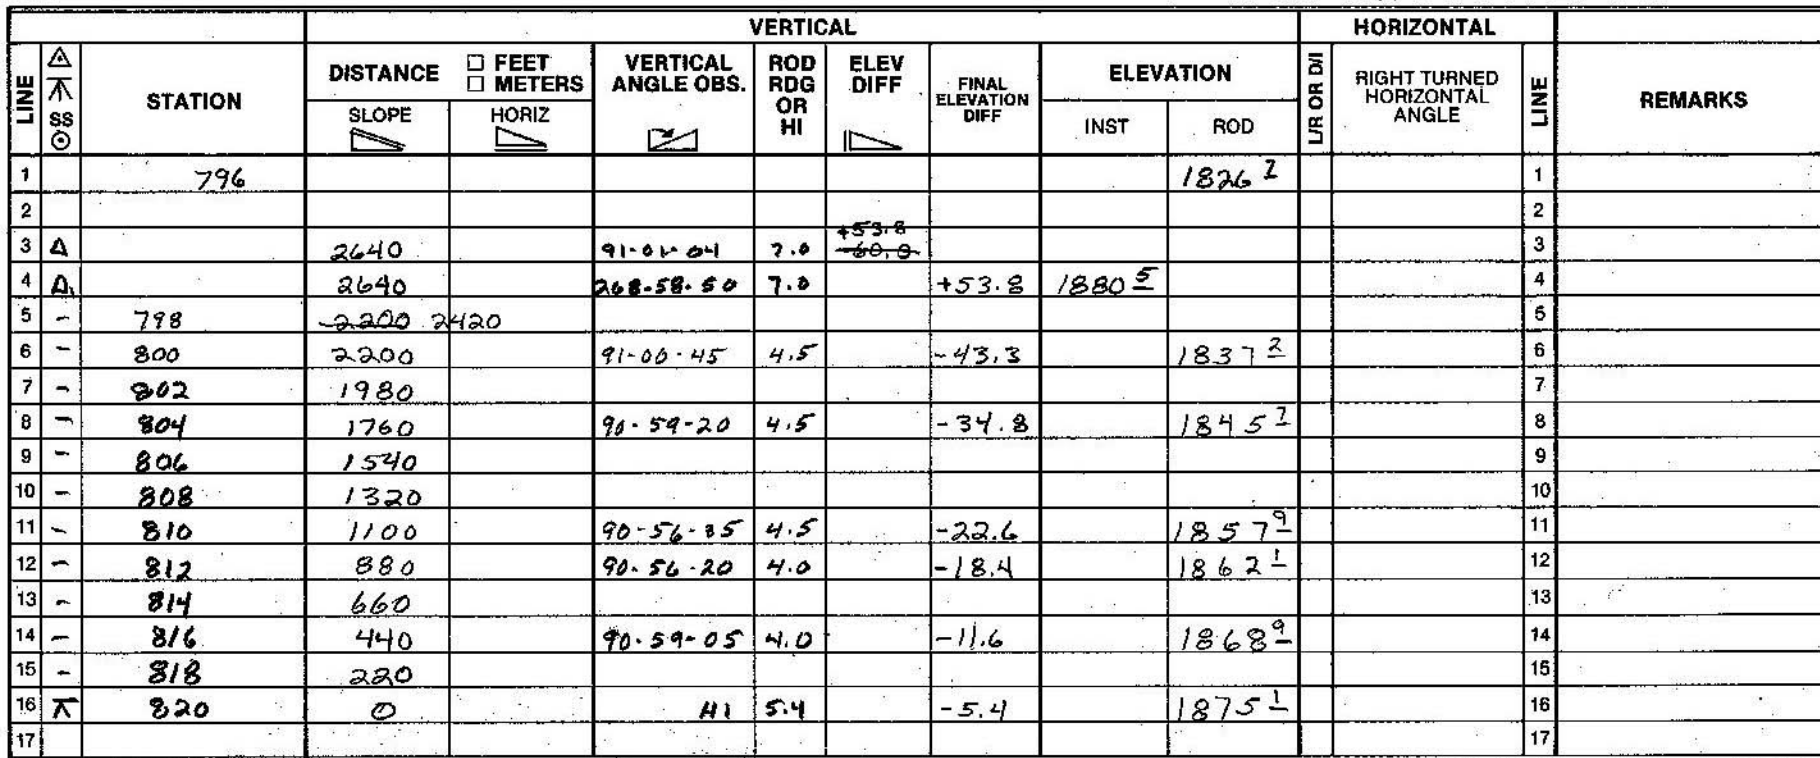 VERTICAL HORIZONTAL
LINE SS STATION DISTANCE □ FEET □ METERS SLOPE HORIZ VERTICAL ANGLE OBS. ROD RDG OR HI ELEV DIFF FINAL ELEVATION DIFF ELEVATION INST ROD L/R OR D/I RIGHT TURNED HORIZONTAL ANGLE LINE REMARKS
1 796 1826 7 1
2 2
+53.8
3 Δ 2640 91-01-04 7.0 -60.0 3
4 Δ 2640 268-58-50 7.0 +53.8 1880 5 4
5 - 798 2200 2420 5
6 - 800 2200 91-00-45 4.5 -43.3 1837 2 6
7 - 802 1980 7
8 - 804 1760 90-59-20 4.5 -34.8 1845 7 8
9 - 806 1540 9
10 - 808 1320 10
11 - 810 1100 90-56-35 4.5 -22.6 1857 9 11
12 - 812 880 90-56-20 4.0 -18.4 1862 1 12
13 - 814 660 13
14 - 816 440 90-59-05 4.0 -11.6 1868 9 14
15 - 818 220 15
16 820 0 HI 5.4 -5.4 1875 1 16
17 17